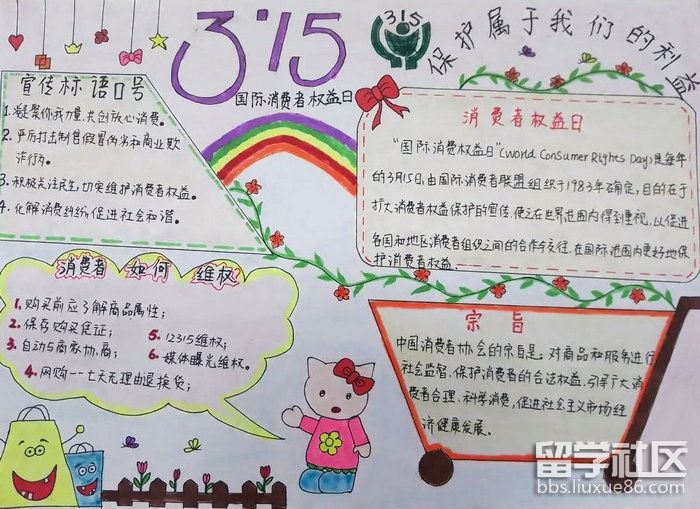 3·15
国际消费者权益日
315
保护属于我们的利益
宣传标语口号
1.凝聚你我力量,共创放心消费。
2.严厉打击制售假冒伪劣和商业欺
诈行为。
3.积极关注民生,切实维护消费者权益。
4.化解消费纠纷,促进社会和谐。
消费者权益日
“国际消费权益日”(World Consumer Rights Day)是每年
的3月15日,由国际消费者联盟组织于1983年确定,目的在于
扩大消费者权益保护的宣传,使之在世界范围内得到重视,以促进
各国和地区消费者组织之间的合作与交往,在国际范围内更好地保
护消费者权益.
消费者如何维权?
1.购买前应了解商品属性;
2.保存购买凭证;
3.自动与商家协商;
4.网购一一七天无理由退换货;
5.12315维权;
6.媒体曝光维权。
宗旨
中国消费者协会的宗旨是:对商品和服务进行
社会监督,保护消费者的合法权益,引导广大消
费者合理、科学消费,促进社会主义市场经
济健康发展.
留学社区
bbs.liuxue86.com